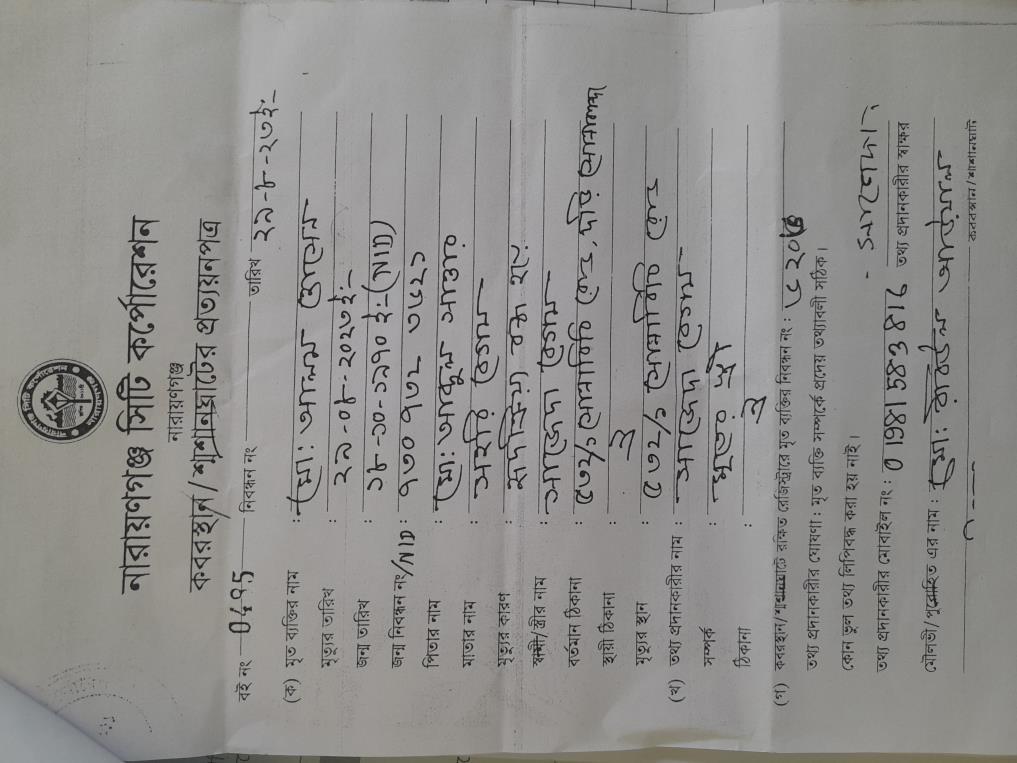 নারায়ণগঞ্জ সিটি কর্পোরেশন
নারায়ণগঞ্জ
কবরস্থান/শ্মশানঘাটের প্রত্যয়নপত্র
বই নং নিবন্ধন নং তারিখ ২৯-৮-২৩ইং-
(ক) মৃত ব্যক্তির নাম : মো: আলম হোসেন
মৃত্যুর তারিখ : ২৯-০৮-২০২৩ইং-
জন্ম তারিখ : ১৮-১০-১৯৭০ ইং-(NID)
জন্ম নিবন্ধন নং/NID : ৭৩০ ৭৩২
পিতার নাম : মো: আব্দুল সাত্তার
মাতার নাম : বেগম
মৃত্যুর কারণ : হৃদক্রিয়া বন্ধ হয়ে
স্বামী/স্ত্রীর নাম : সাজেদা বেগম
বর্তমান ঠিকানা : ৫৭২/১ রোড,
স্থায়ী ঠিকানা : ঐ
মৃত্যুর স্থান : ৫৭২/১ রোড
(খ) তথ্য প্রদানকারীর নাম : সাজেদা বেগম
সম্পর্ক : মৃতের স্ত্রী
ঠিকানা : ঐ
(গ) কবরস্থান/শ্মশানঘাটে রক্ষিত রেজিস্টারে মৃত ব্যক্তির নিবন্ধন নং :
তথ্য প্রদানকারীর ঘোষণা : মৃত ব্যক্তি সম্পর্কে প্রদেয় তথ্যাবলী সঠিক।
কোন ভুল তথ্য লিপিবদ্ধ করা হয় নাই।
তথ্য প্রদানকারীর মোবাইল নং : 01981583816
তথ্য প্রদানকারীর স্বাক্ষর
মৌলভী/পুরোহিত এর নাম : মো:
কবরস্থান/শ্মশানঘাট